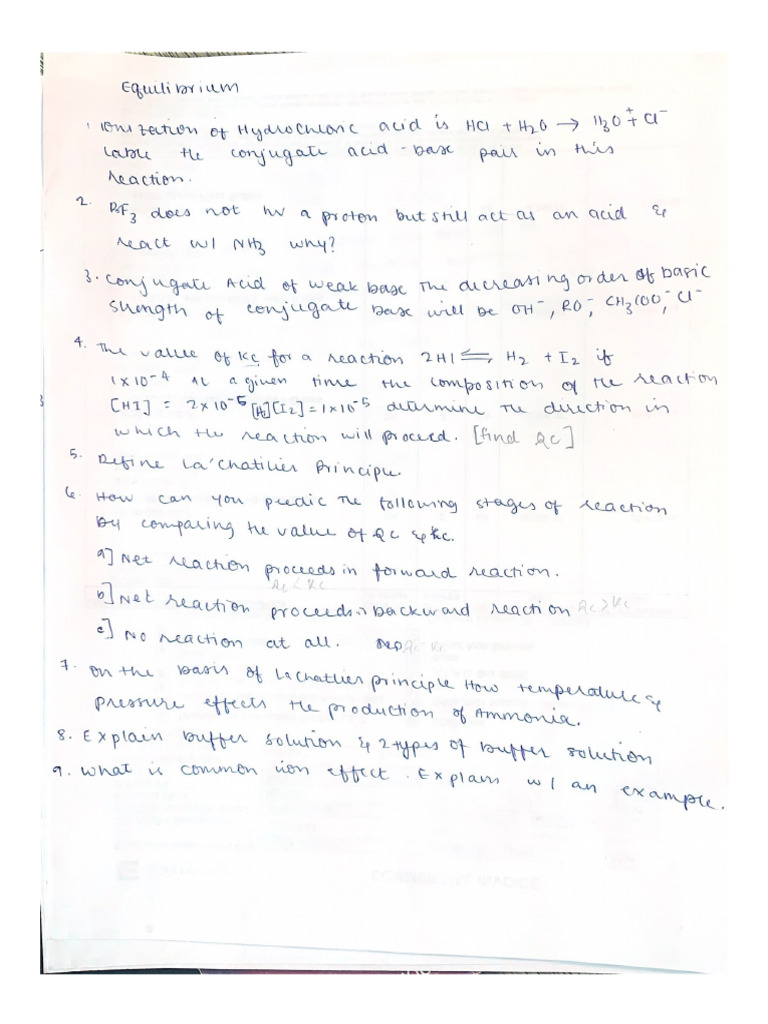 Equilibrium
1 Ionization of Hydrochloric acid is HCl + H2O → H3O+ + Cl-
lable the conjugate acid - base pair in this
reaction.
2. BF3 does not hv a proton but still act as an acid &
react w/ NH3 why?
3. Conjugate Acid of weak base The decreasing order of basic
strength of conjugate base will be OH-, RO-, CH3COO-, Cl-
4. The value of Kc for a reaction 2HI ⇌ H2 + I2 if
1×10-4 At a given time the composition of the reaction
[HI] = 2×10-5 [H2][I2] = 1×10-5 determine the direction in
which the reaction will proceed. [find Qc]
5. Define La'Chatilier Principle.
6. How can you predic the following stages of reaction
by comparing the value of Qc & Kc.
a] Net reaction proceeds in forward reaction.
Qc < Kc
b] Net reaction proceeds in backward reaction Qc > Kc
c] No reaction at all. Qc = Kc
7. On the basis of LaChatlier principle How temperature &
pressure effects the production of Ammonia.
8. Explain buffer solution & 2 types of buffer solution
9. What is common ion effect. Explain w/ an example.